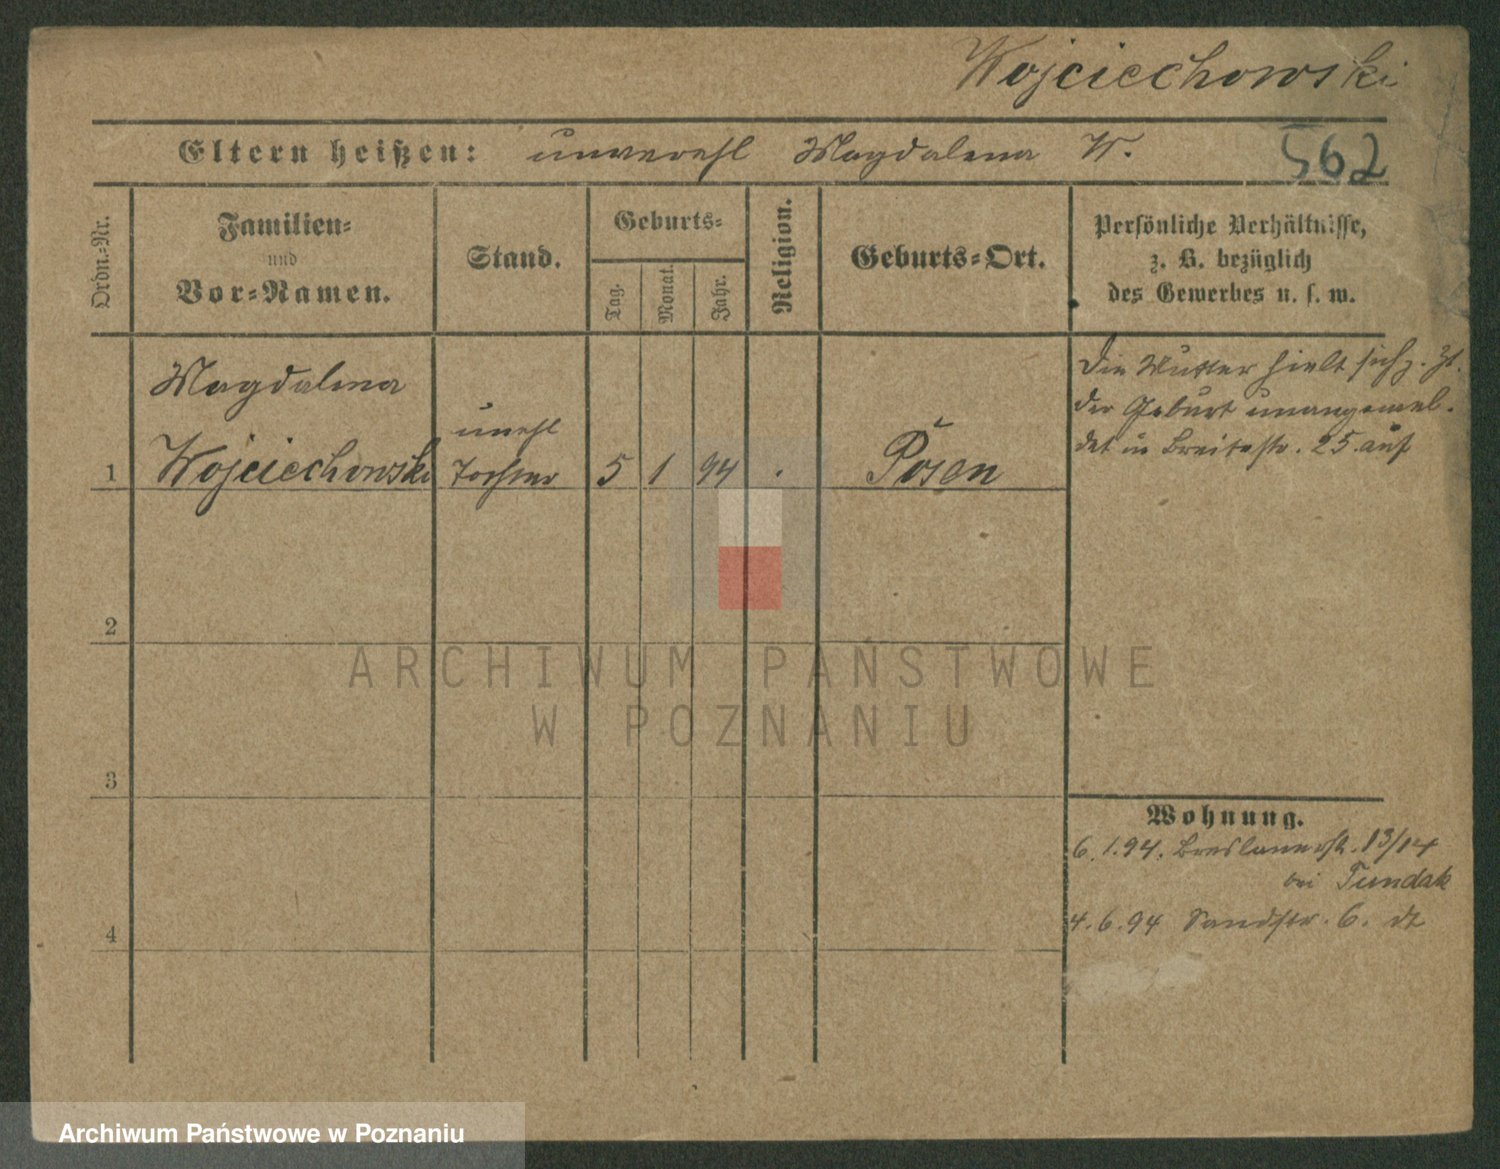 Wojciechowski
Eltern heißen: unverehl Magdalena W.
562
Ordn.=Nr.
Familien=
und
Vor=Namen.
Stand.
Geburts=
Tag.
Monat.
Jahr.
Religion.
Geburts=Ort.
Persönliche Verhältnisse,
z. B. bezüglich
des Gewerbes u. s. w.
Magdalena
1 Wojciechowski
unehl
Tochter
5 1 94 .
Posen
Die Mutter hielt sich z. Zt.
der Geburt unangemel-
det in Breitestr. 25 auf
2
3
4
Wohnung.
6.1.94. Breslauerstr. 13/14
bei Tundak
4.6.94 Sandstr. 6. dt
ARCHIWUM PAŃSTWOWE
W POZNANIU
Archiwum Państwowe w Poznaniu